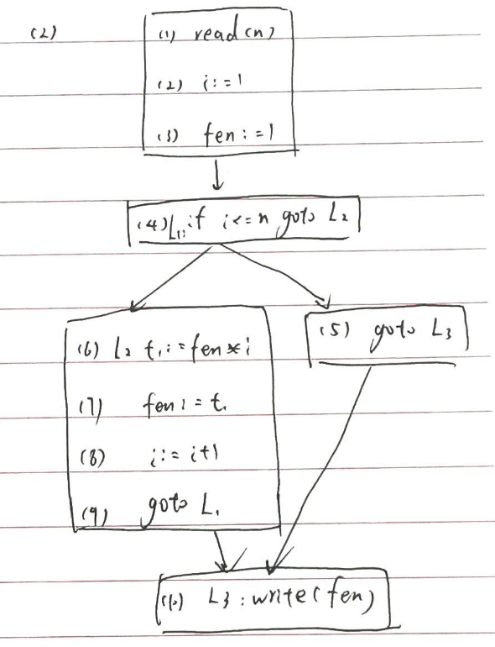 (2)
(1) read(n)
(2) i:=1
(3) fen:=1
(4) L1: if i<=n goto L2
(5) goto L3
(6) L2 t1:=fen*i
(7) fen:=t1
(8) i:=i+1
(9) goto L1
(10) L3:write(fen)